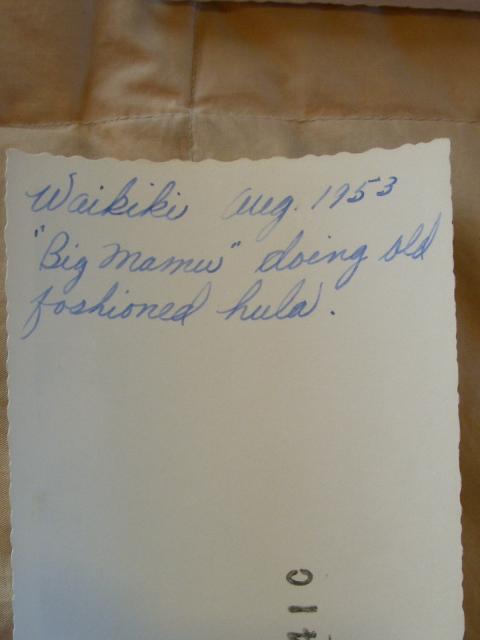 Waikiki Aug. 1953
"Big Mamu" doing old
fashioned hula.
41C